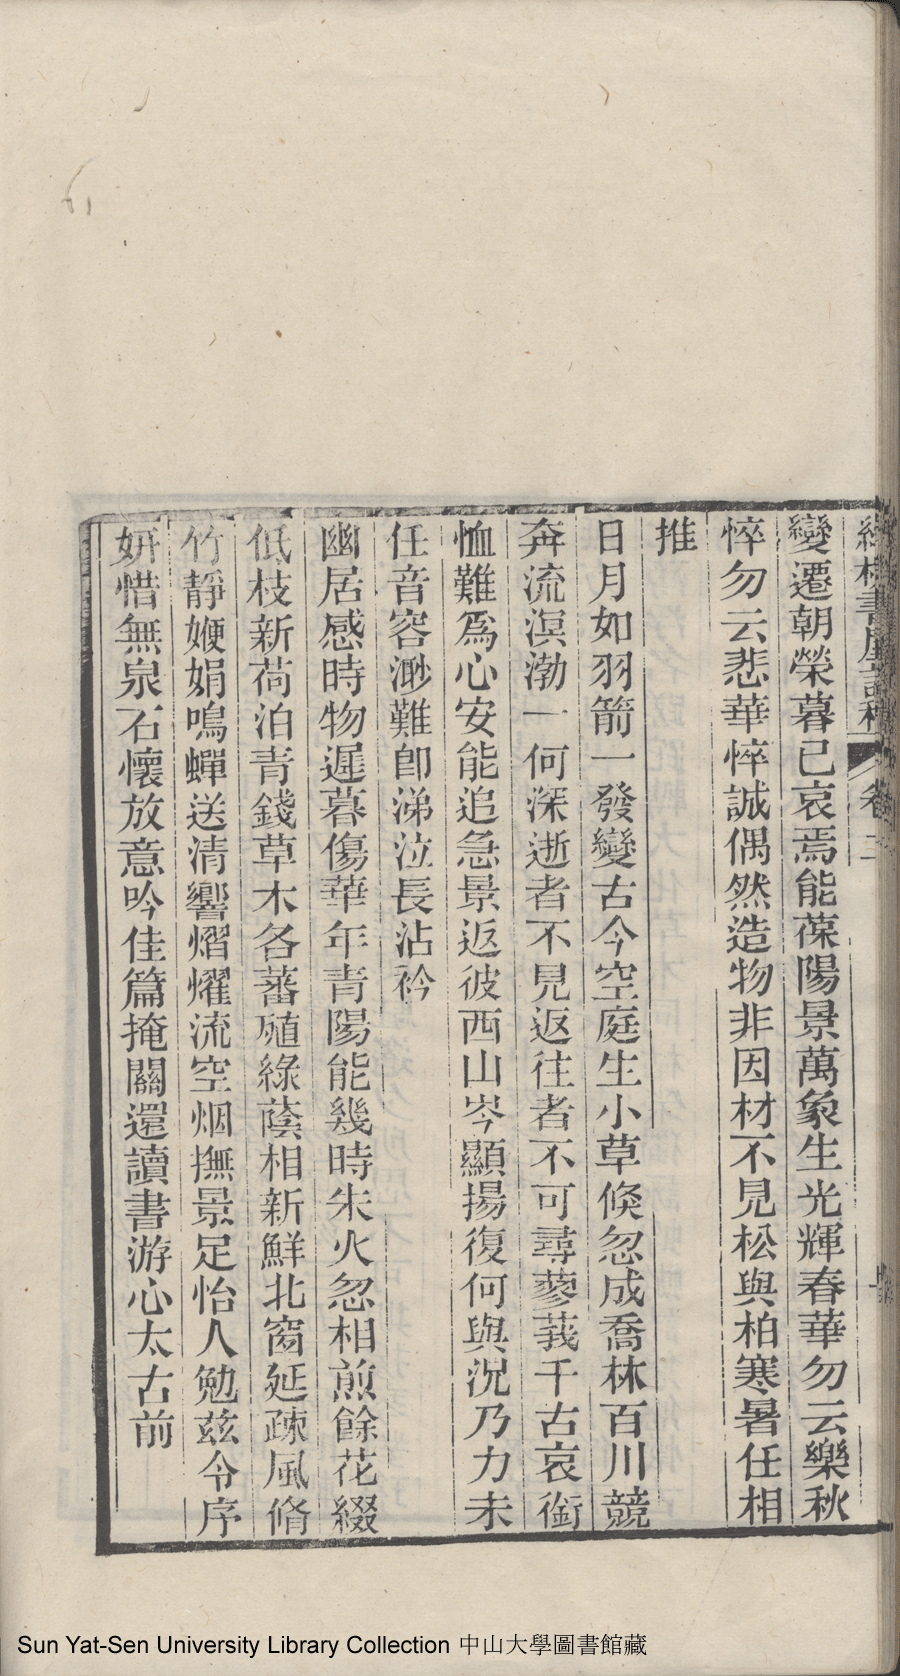 書屋詩稿 卷二
變遷朝榮暮已哀焉能葆陽景萬象生光輝春華勿云樂秋
悴勿云悲華悴誠偶然造物非因材不見松與柏寒暑任相
推
日月如羽箭一發變古今空庭生小草倏忽成喬林百川競
奔流溟渤一何深逝者不見返往者不可尋蓼莪千古哀銜
恤難爲心安能追急景返彼西山岑顯揚復何與況乃力未
任音容渺難卽涕泣長沾衿
幽居感時物遲暮傷華年青陽能幾時朱火忽相煎餘花綴
低枝新荷泊青錢草木各蕃殖綠蔭相新鮮北窗延疎風脩
竹靜㛹娟鳴蟬送清響熠燿流空烟撫景足怡人勉茲令序
妍惜無泉石懷放意吟佳篇掩關還讀書游心太古前
Sun Yat-Sen University Library Collection 中山大學圖書館藏